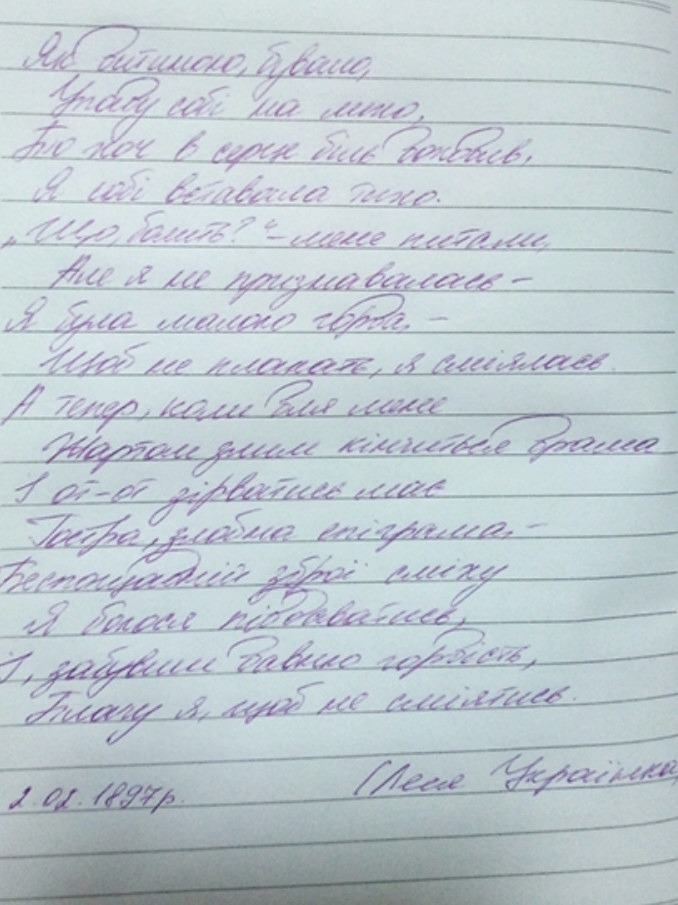 Як дитиною, бувало,
Упаду собі на лихо,
То хоч в серце біль доходив,
Я собі вставала тихо.
„Що, болить?" – мене питали,
Але я не признавалась –
Я була малою горда, –
Щоб не плакать, я сміялась.
А тепер, коли для мене
Жартом злим кінчиться драма
І от-от зірватись має
Гостра, злобна епіграма, –
Беспощадній зброї сміху
Я боюся піддаватись,
І, забувши давню гордість,
Плачу я, щоб не сміятись.
(Леся Українка)
2.02.1897р.